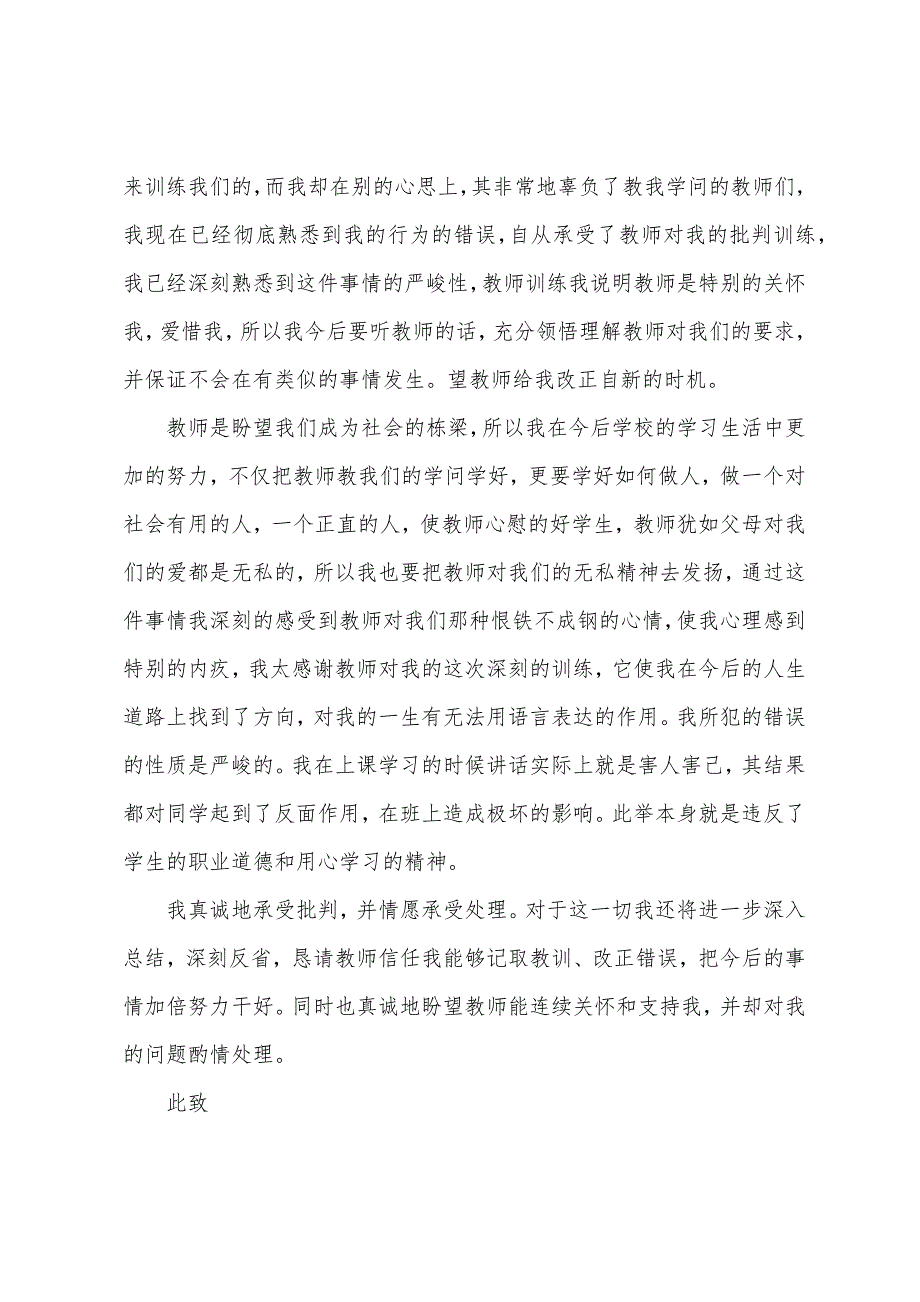 来训练我们的，而我却在别的心思上，其非常地辜负了教我学问的教师们，
我现在已经彻底熟悉到我的行为的错误，自从承受了教师对我的批判训练，
我已经深刻熟悉到这件事情的严峻性，教师训练我说明教师是特别的关怀
我，爱惜我，所以我今后要听教师的话，充分领悟理解教师对我们的要求，
并保证不会在有类似的事情发生。望教师给我改正自新的时机。
教师是盼望我们成为社会的栋梁，所以我在今后学校的学习生活中更
加的努力，不仅把教师教我们的学问学好，更要学好如何做人，做一个对
社会有用的人，一个正直的人，使教师心慰的好学生，教师犹如父母对我
们的爱都是无私的，所以我也要把教师对我们的无私精神去发扬，通过这
件事情我深刻的感受到教师对我们那种恨铁不成钢的心情，使我心理感到
特别的内疚，我太感谢教师对我的这次深刻的训练，它使我在今后的人生
道路上找到了方向，对我的一生有无法用语言表达的作用。我所犯的错误
的性质是严峻的。我在上课学习的时候讲话实际上就是害人害己，其结果
都对同学起到了反面作用，在班上造成极坏的影响。此举本身就是违反了
学生的职业道德和用心学习的精神。
我真诚地承受批判，并情愿承受处理。对于这一切我还将进一步深入
总结，深刻反省，恳请教师信任我能够记取教训、改正错误，把今后的事
情加倍努力干好。同时也真诚地盼望教师能连续关怀和支持我，并却对我
的问题酌情处理。
此致